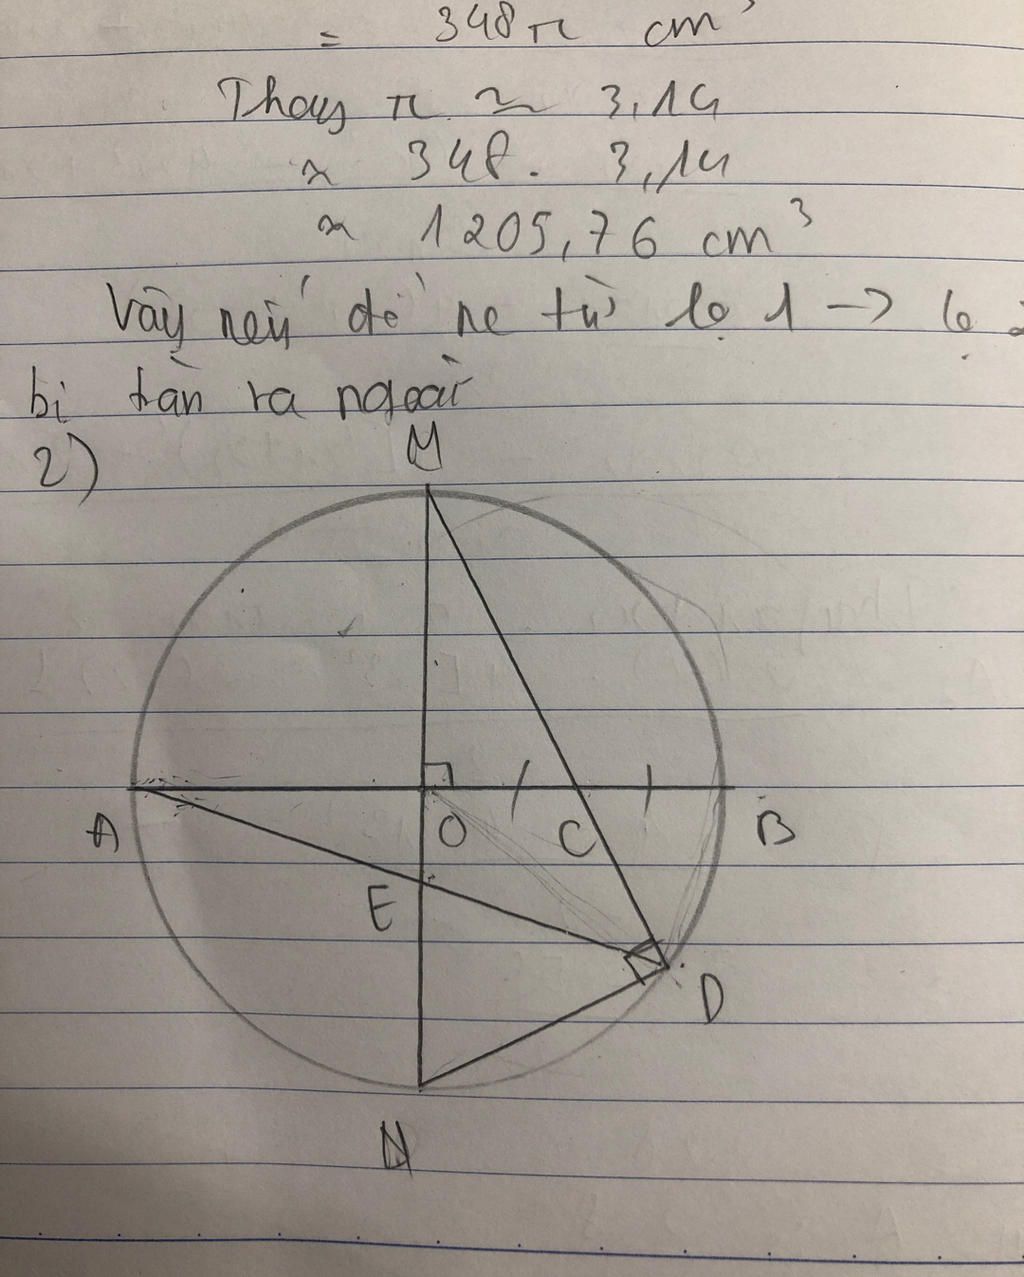 = 348π cm³
Thay π ≈ 3,14
≈ 348. 3,14
≈ 1205,76 cm³
Vậy nếu đổ từ lọ 1 → lọ
bị tàn ra ngoài
2)
M
A O C B
E
D
N